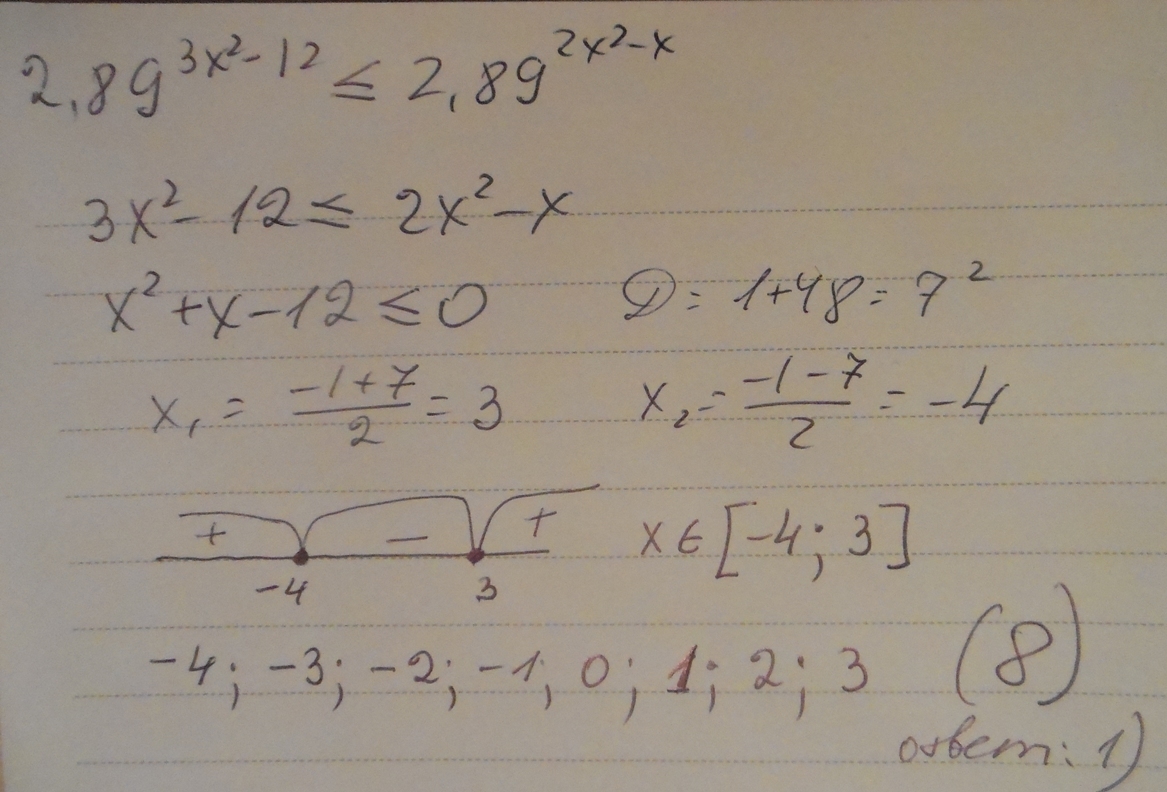 2,89^{3x²-12} ≤ 2,89^{2x²-x}
3x²-12 ≤ 2x²-x
x²+x-12 ≤ 0 D = 1+48 = 7²
x₁ = \frac{-1+7}{2} = 3 x₂ = \frac{-1-7}{2} = -4
+ - + x ∈ [-4; 3]
-4 3
-4; -3; -2; -1; 0; 1; 2; 3 (8)
ответ: 1)